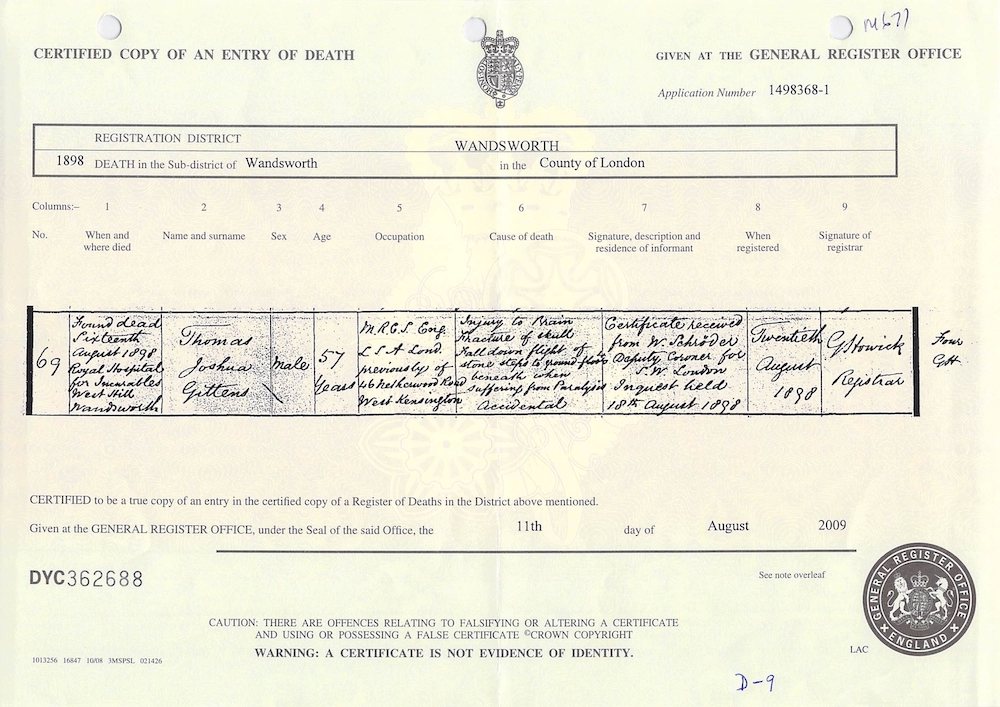 M677
CERTIFIED COPY OF AN ENTRY OF DEATH
GIVEN AT THE GENERAL REGISTER OFFICE
Application Number 1498368-1
REGISTRATION DISTRICT
WANDSWORTH
1898 DEATH in the Sub-district of Wandsworth in the County of London
Columns:– 1 2 3 4 5 6 7 8 9
No.
When and
where died
Name and surname
Sex
Age
Occupation
Cause of death
Signature, description and
residence of informant
When
registered
Signature of
registrar
69
Found dead
Sixteenth
August 1898
Royal Hospital
for Incurables
West Hill
Wandsworth
Thomas
Joshua
Gittens
Male
57
Years
M.R.C.S. Eng.
L S A Lond.
previously of
46 Netherwood Road
West Kensington
Injury to Brain
Fracture of skull
Fall down flight of
stone steps to ground floor
beneath when
suffering from Paralysis
Accidental
Certificate received
from W. Schröder
Deputy Coroner for
S.W. London
Inquest held
18th August 1898
Twentieth
August
1898
G S Howick
Registrar
Four
GSH
CERTIFIED to be a true copy of an entry in the certified copy of a Register of Deaths in the District above mentioned.
Given at the GENERAL REGISTER OFFICE, under the Seal of the said Office, the 11th day of August 2009
DYC362688
See note overleaf
GENERAL REGISTER OFFICE
ENGLAND
CAUTION: THERE ARE OFFENCES RELATING TO FALSIFYING OR ALTERING A CERTIFICATE
AND USING OR POSSESSING A FALSE CERTIFICATE ©CROWN COPYRIGHT
WARNING: A CERTIFICATE IS NOT EVIDENCE OF IDENTITY.
LAC
1013256 16847 10/08 3MSPSL 021426
D-9